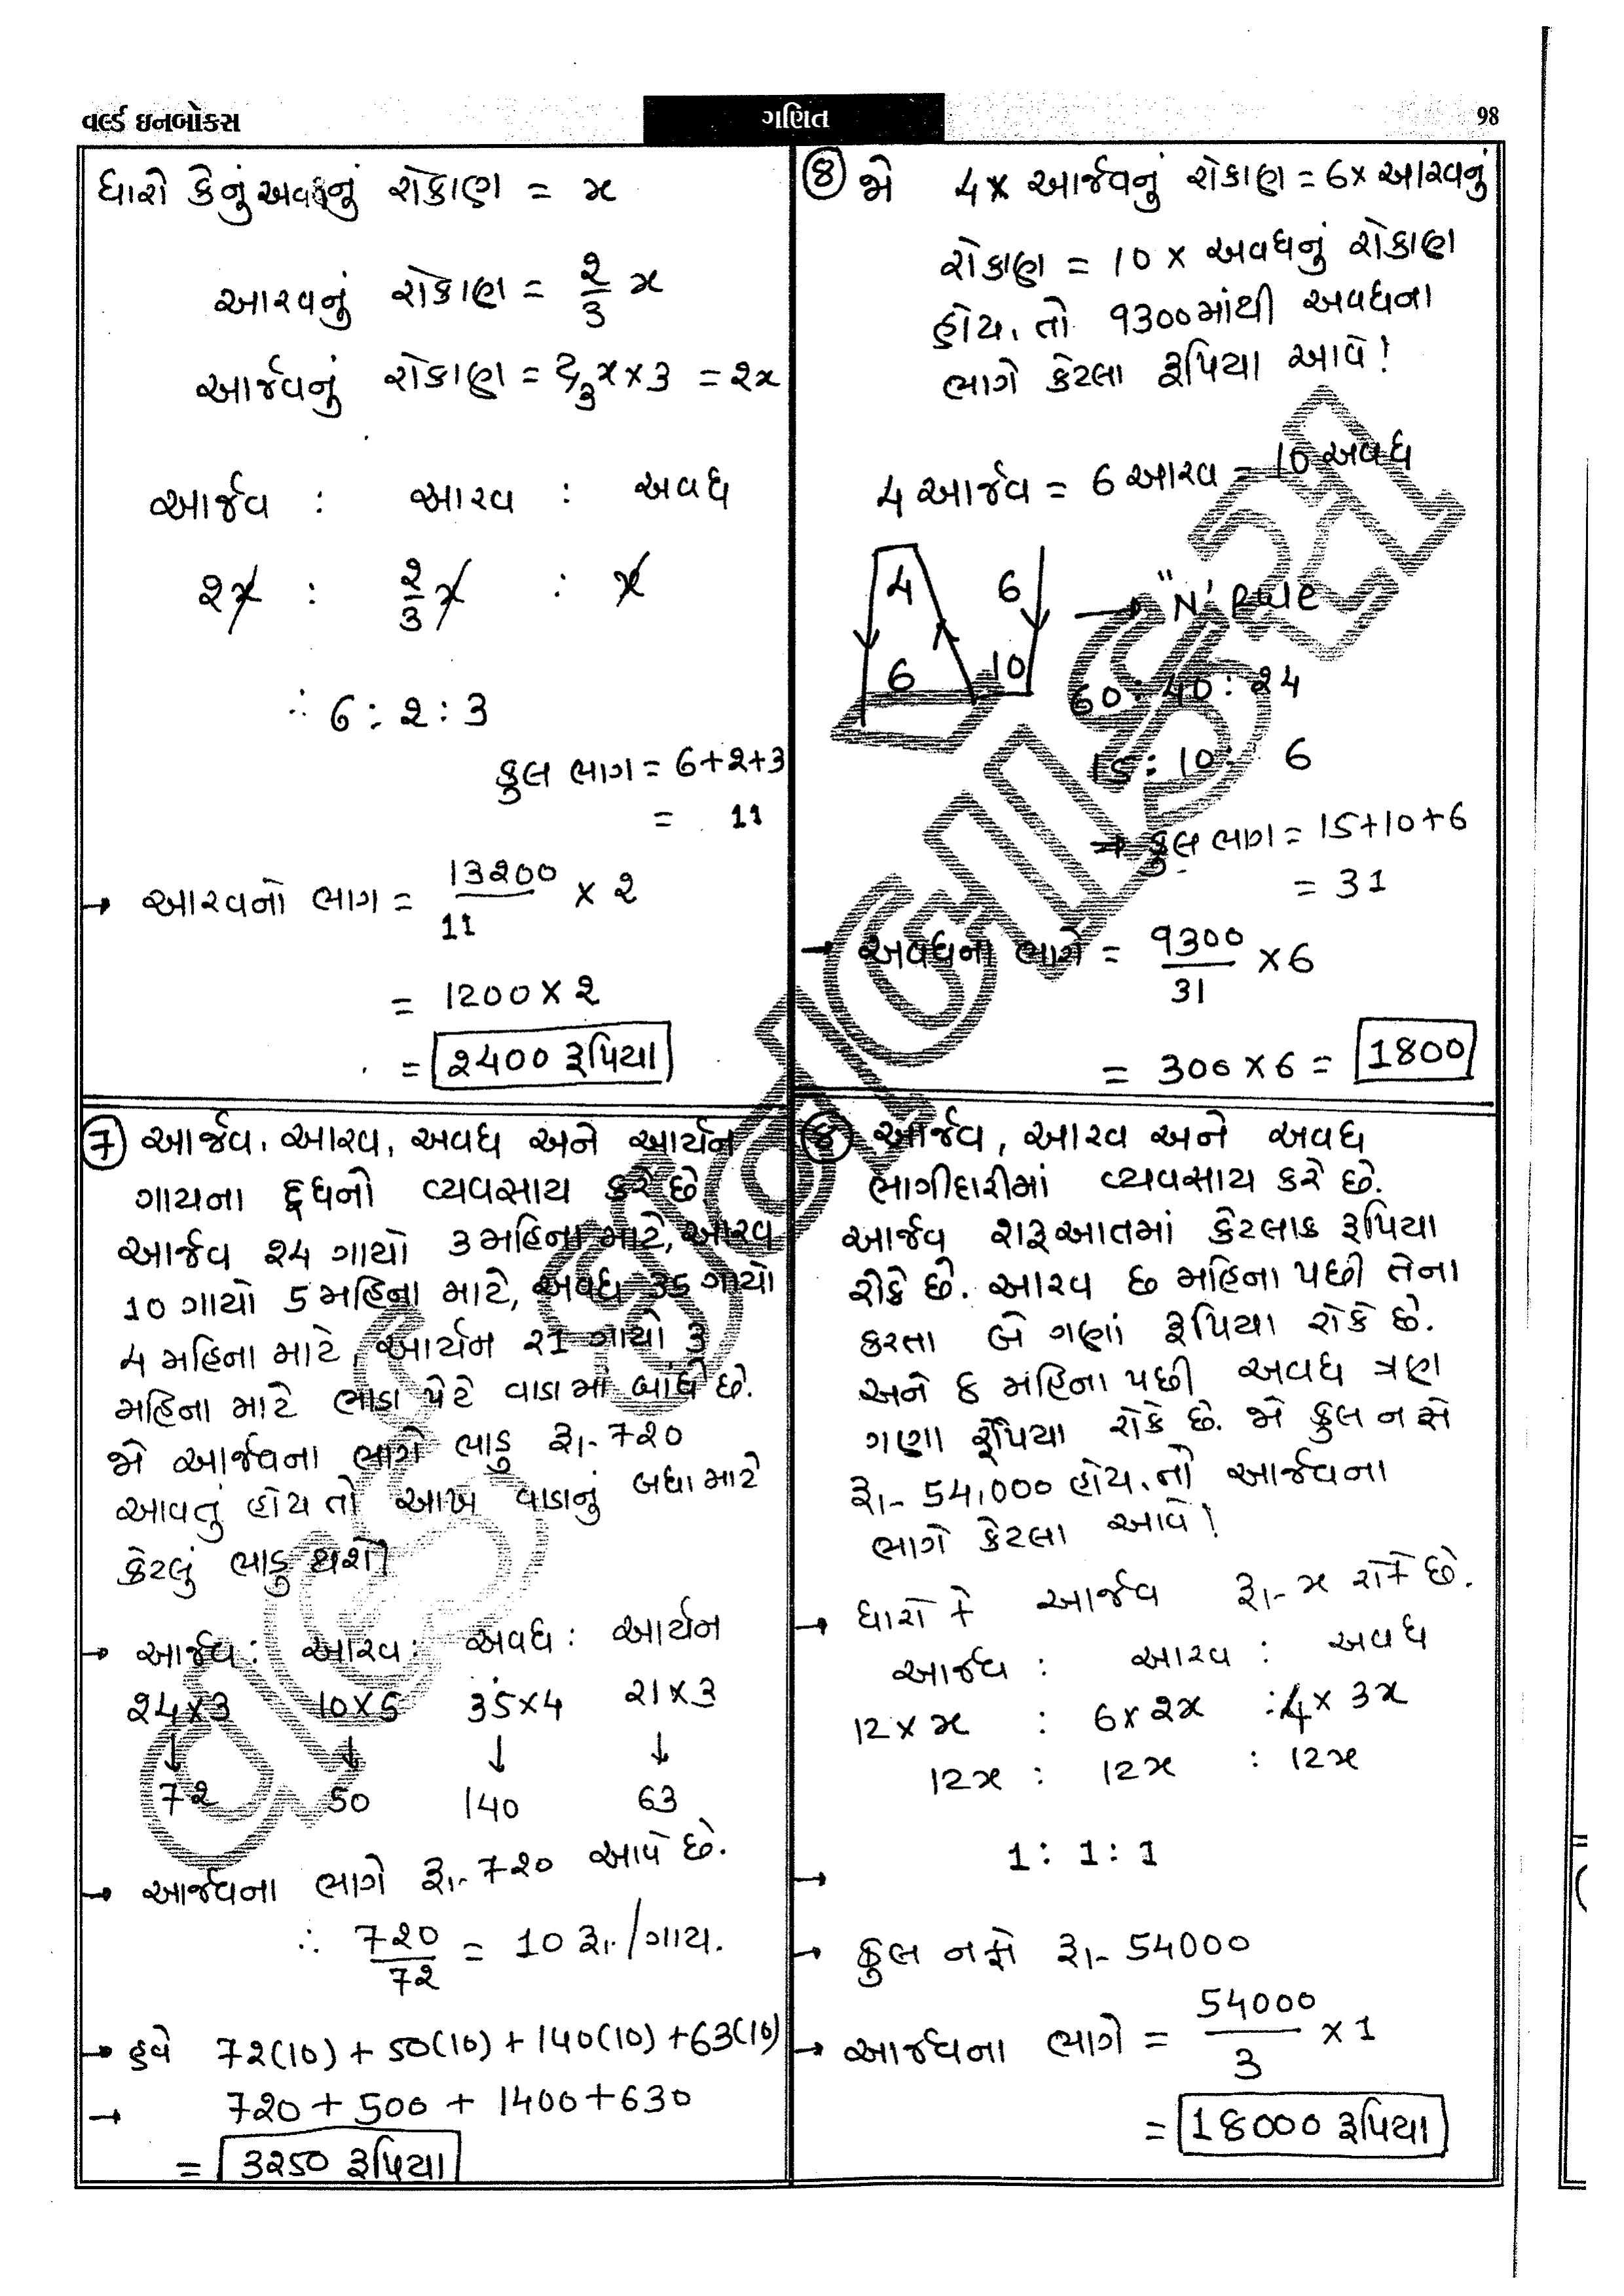 વર્લ્ડ ઇનબોક્સ
ગણિત
98
ધારો કેનું અવધનું રોકાણ = x
આરવનું રોકાણ = ૨/3 x
આર્જવનું રોકાણ = ૨/3 x × 3 = ૨x
આર્જવ : આરવ : અવધ
૨x : ૨/3 x : x
∴ 6 : ૨ : 3
કુલ ભાગ = 6+૨+3
= 11
→ આરવનો ભાગ = 13૨00/11 × ૨
= 1200 × ૨
= ૨400 રૂપિયા
⑦ આર્જવ, આરવ, અવધ અને આર્યન
ગાયના દુધનો વ્યવસાય કરે છે.
આર્જવ ૨4 ગાયો 3 મહિના માટે, આરવ
10 ગાયો 5 મહિના માટે, અવધ 35 ગાયો
4 મહિના માટે, આર્યન ૨1 ગાયો 3
મહિના માટે ભાડા પેટે વાડામાં બાંધે છે.
જો આર્જવના ભાગે ભાડુ રૂા.- 7૨0
આવતું હોય તો આખા વાડાનું બધા માટે
કેટલું ભાડુ થશે?
→ આર્જવ : આરવ : અવધ : આર્યન
૨4×3 10×5 35×4 ૨1×3
↓ ↓ ↓ ↓
7૨ 50 140 63
→ આર્જવના ભાગે રૂા.- 7૨0 આવે છે.
∴ 7૨0/7૨ = 10 રૂા./ગાય.
→ હવે 7૨(10) + 50(10) + 140(10) + 63(10)
→ 7૨0 + 500 + 1400 + 630
= 3૨50 રૂપિયા
⑧ જો 4 × આર્જવનું રોકાણ = 6 × આરવનું
રોકાણ = 10 × અવધનું રોકાણ
હોય, તો ૧300માંથી અવધના
ભાગે કેટલા રૂપિયા આવે?
4 આર્જવ = 6 આરવ = 10 અવધ
4 6 → "N" Rule
6 10
60 : 40 : ૨4
15 : 10 : 6
→ કુલ ભાગ = 15+10+6
= 31
→ અવધના ભાગે = 9300/31 × 6
= 300 × 6 = 1800
⑧ આર્જવ, આરવ અને અવધ
ભાગીદારીમાં વ્યવસાય કરે છે.
આર્જવ શરૂઆતમાં કેટલાક રૂપિયા
રોકે છે. આરવ છ મહિના પછી તેના
કરતા બે ગણાં રૂપિયા રોકે છે.
અને 8 મહિના પછી અવધ ત્રણ
ગણા રૂપિયા રોકે છે. જો કુલ નફો
રૂા.- 54,000 હોય, તો આર્જવના
ભાગે કેટલા આવે?
→ ધારો કે આર્જવ રૂા.- x રોકે છે.
આર્જવ : આરવ : અવધ
12 × x : 6 × ૨x : 4 × 3x
12x : 12x : 12x
→ 1 : 1 : 1
→ કુલ નફો રૂા.- 54000
→ આર્જવના ભાગે = 54000/3 × 1
= 18000 રૂપિયા